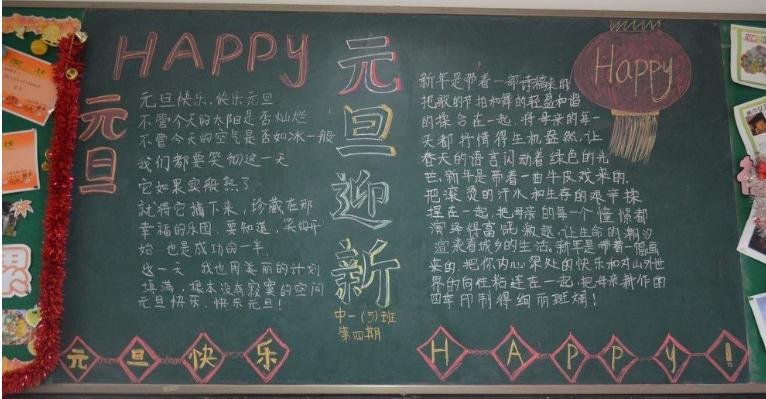 HAPPY
元旦
元旦快乐,快乐元旦
不管今天的太阳是否灿烂
不管今天的空气是否如冰一般
我们都要笑彻这一天
它如果实般熟了
就将它摘下来,珍藏在那
幸福的乐园.要知道,笑的开
始 也是成功的一半.
这一天 我也用美丽的计划
填满,根本没有寂寞的空间
元旦快乐.快乐元旦!
元旦迎新
中一(5)班
第四期
新年是带着一部诗稿来的
把歌的节拍和舞的轻盈和谐
的揉合在一起.将母亲的每一
天都抒情得生机盎然,让
春天的语言闪动着绿色的光
芒.新年是带着一曲牛皮戏来的.
把滚烫的汗水和生存的艰辛揉
捏在一起.把母亲的每一个憧憬都
演奏得高亢激越.让生命的潮汐
渲染着城乡的生活.新年是带着一幅画
来的.把你内心深处的快乐和对山外世
界的向往粘连在一起.把母亲耕作的
四季印制得绚丽斑斓!
Happy
元旦快乐
HAPPY!